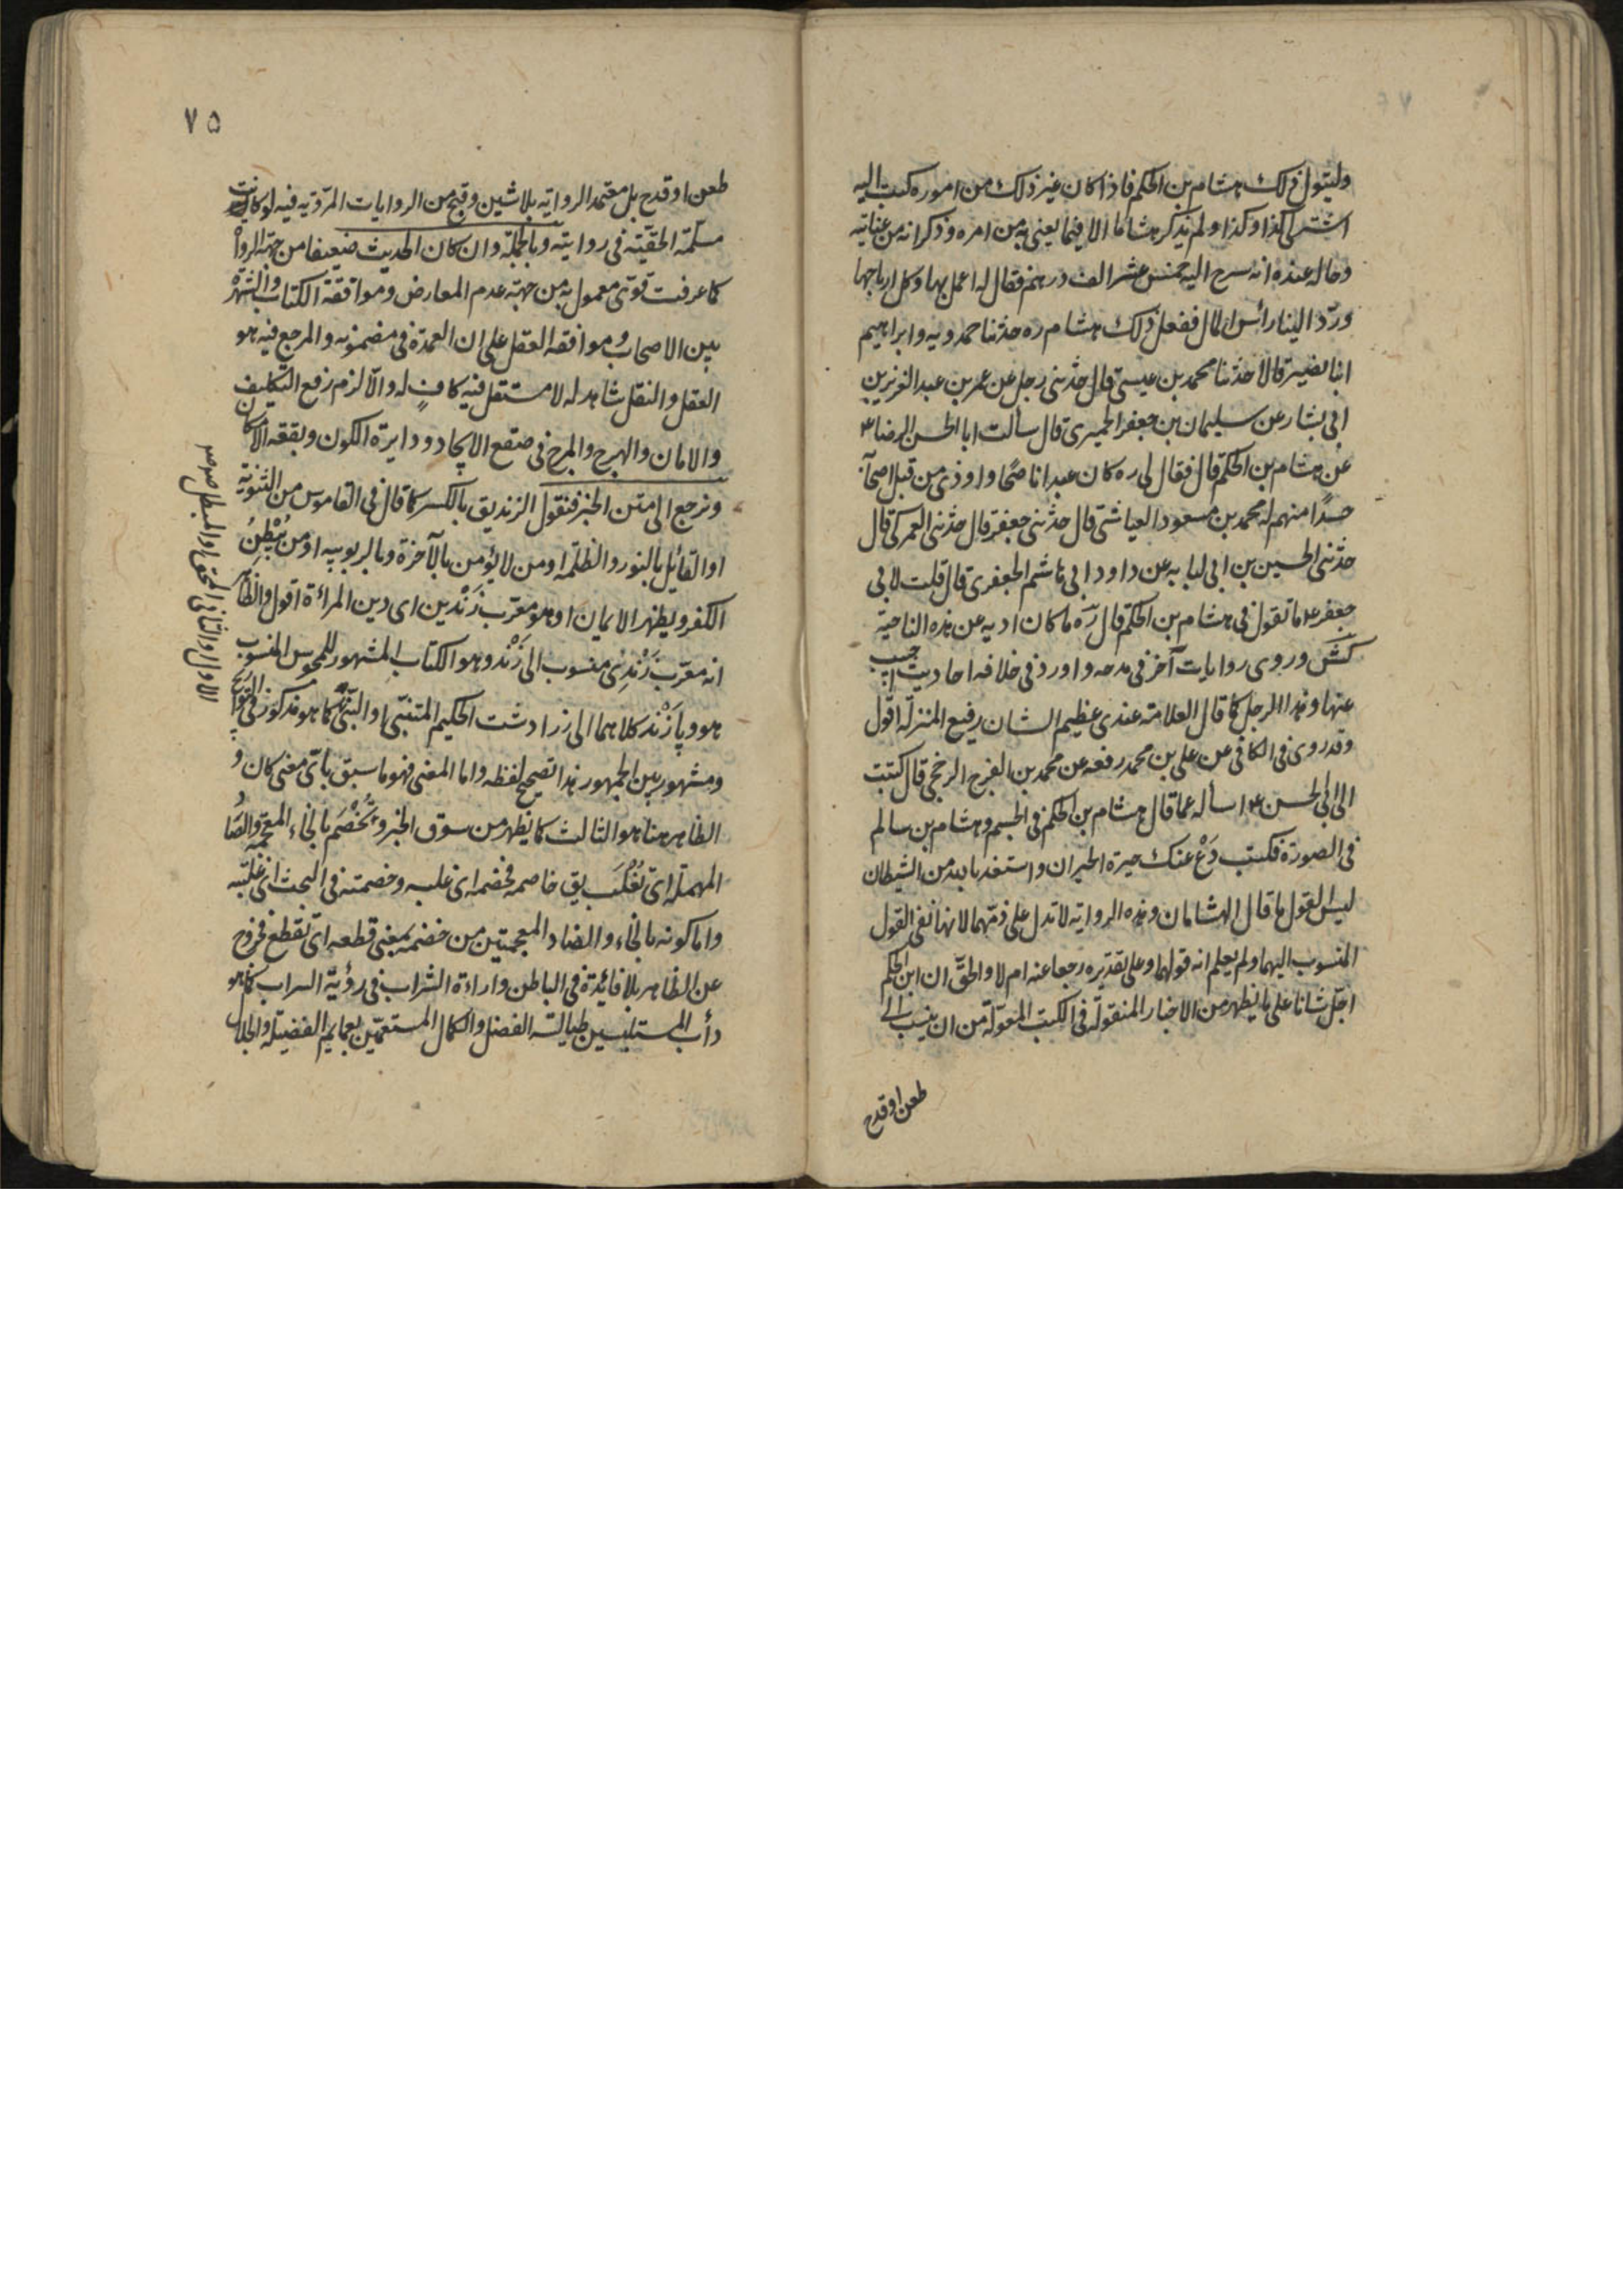 وليتول ذلك هشام بن الحكم فاذا كان غير ذلك من اموره كتب اليه
اشتر لي كذا وكذا ولم يذكر هشاما الا فيما يعنى به من امره وذكر انه من عنايته
وحاله عنده انه سرح اليه خمس عشر الف درهم فقال له اعمل بها وكل ارباحها
وردّ الينا رأس المال ففعل ذلك هشام ره حدثنا حمدويه وابراهيم
ابنا نصير قالا حدثنا محمد بن عيسى قال حدثنى رجل عن عمر بن عبد العزيز بن
ابى بشار عن سليمان بن جعفر الحميرى قال سألت ابا الحسن الرضا ع
عن هشام بن الحكم قال فقال لى ره كان عبدا ناصحًا واوذى من قبل اصحابه
حسدًا منهم له محمد بن مسعود العياشى قال حدثنى جعفر قال حدثنى العمركى قال
حدثنى الحسين بن ابى لبابه عن داود ابى هاشم الجعفرى قال قلت لابى
جعفر ع ما تقول فى هشام بن الحكم قال ره ما كان اذبه عن هذه الناحية
كش وروى روايات آخر فى مدحه واورد فى خلافه احاديث اجيب
عنها وهذا الرجل كما قال العلامة عندى عظيم الشان رفيع المنزلة اقول
وقد روى فى الكافى عن على بن محمد رفعه عن محمد بن الفرج الرخجى قال كتبت
الى ابى الحسن ع اسأله عما قال هشام بن الحكم فى الجسم وهشام بن سالم
فى الصورة فكتب دَعْ عنك حيرة الحيران واستعذ بالله من الشيطان
ليس القول ما قال الهشامان وهذه الرواية لا تدل على ذمّهما لانها نفى القول
المنسوب اليهما ولم يعلم انه قولهما وعلى تقديره رجعا عنه ام لا والحقّ ان ابن الحكم
اجلّ شانا على ما يظهر من الاخبار المنقولة فى الكتب المعوّلة من ان ينسب الى
طعن او قدح
٧٥
طعن او قدح بل معتمد الرواية بلا شين وقبح من الروايات المرويّه فيه لو كانت
مسلّمة الحقيّة فى روايته وبالجملة وان كان الحديث ضعيفا من جهة الرواة
كما عرفت قوىّ معمول به من جهة عدم المعارض وموافقة الكتاب والشهرة
بين الاصحاب وموافقه العقل على ان العمدة فى مضمونه والمرجع فيه هو
العقل والنقل شاهد له لا مستقل فيه كافٍ له والا لزم رفع التكليف
والامان والهرج والمرج فى صقع الايجاد ودايرة الكون وبقعه الامكان
ونرجع الى متن الخبر فنقول الزنديق بالكسر كما قال فى القاموس من الثنويّة
او القائل بالنور والظلمة او من لا يؤمن بالآخرة وبالربوبيه او من يُبْطِنُ
الكفر ويظهر الايمان او هو معرّب زَنْ دين اى دين المرائة اقول والظاهر
انه معرّب زَنْدِىْ منسوب الى زَنْد وهو الكتاب المشهور للمجوس المنسوب
هو وپازَنْد كلاهما الى زرادشت الحكيم المتنبّى او النبىّ كما هو مذكور فى التواريخ
ومشهور بين الجمهور هذا تصحيح لفظه واما المعنى فهو ما سبق باىّ معنى كان و
الظاهر هنا هو الثالث كما يظهر من سوق الخبر وتُخْصَم بالخاء المعجمة والصاد
المهملة اى تُغْلَب يق خاصمه فخصمه اى غلبه وخصمته فى البحث اى غلبّته
واما كونه بالخاء والضاد المعجمتين من خضمه بمعنى قطعه اى تقطع فخروج
عن الظاهر بلا فائدة فى الباطن واراءة الشراب فى رؤية السراب كما هو
دأب المستلبسين طيالسة الفضل والكمال المستعمّين بعمايم الفضيلة والجلال
الاول والثانى المحق والمبطل